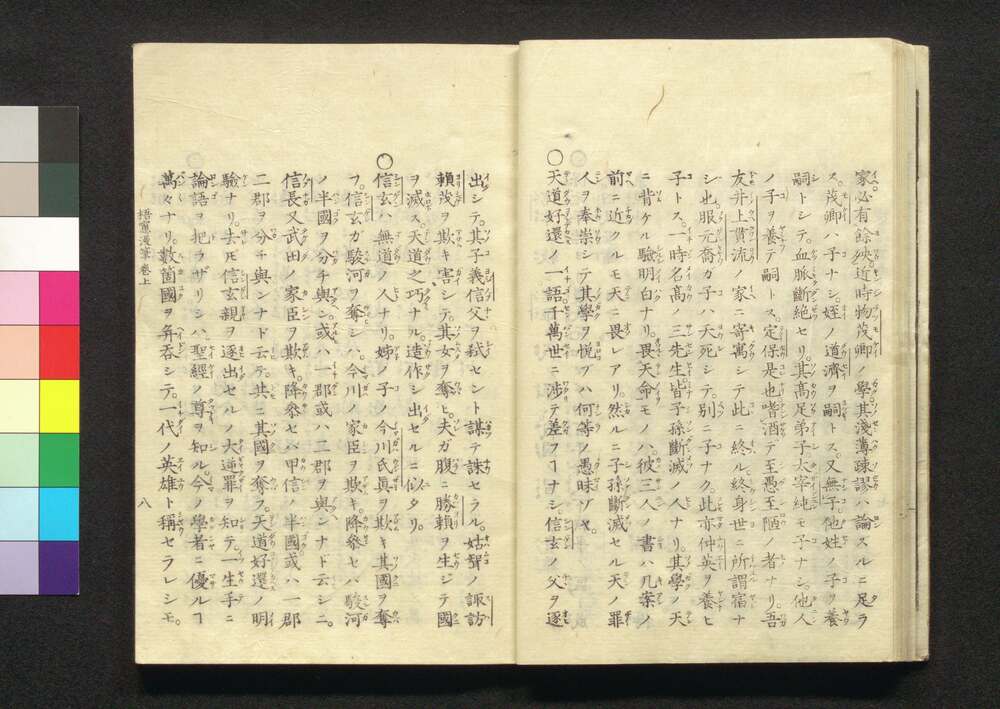 家必有餘殃近時物茂卿ノ學。其淺薄疎謬ハ論スルニ足ラ
ス。茂卿ハ子ナシ。姪ノ道濟ヲ嗣トス。又無子。他姓ノ子ヲ養
嗣トシテ。血脈斷絶セリ。其高足弟子太宰純モ子ナシ。他人
ノ子ヲ養テ嗣トス。定保是也嗜酒テ至愚至陋ノ者ナリ。吾
友井上貫流ノ家ニ寄寓シテ此ニ終ル。終身世ニ所謂宿ナ
シ也服元喬カ子ハ夭死シテ。別ニ子ナク此亦仲英ヲ養ヒ
子トス。一時名高ノ三先生皆子孫斷滅ノ人ナリ。其學ノ天
ニ背ケル驗明白ナリ。畏天命モノハ。彼三人ノ書ハ几案ノ
前ニ近クルモ天ニ畏レアリ。然ルニ子孫斷滅セル天ノ罪
人ヲ奉崇シテ其學ヲ悦ブハ何等ノ愚昧ゾヤ。
○天道好還ノ一語。千萬世ニ涉テ差フヿナシ信玄ノ父ヲ逐
出シテ。其子義信父ヲ弑セント謀テ誅セラル。姑壻ノ諏訪
頼茂ヲ欺キ害シテ。其女ヲ奪ヒ。夫ガ腹ニ勝頼ヲ生ジテ國
ヲ滅ス。天道之巧ナル。造作シ出セルニ似タリ。
○信玄ハ無道ノ人ナリ。姊ノ子ノ今川氏眞ヲ欺キ其國ヲ奪
フ。信玄ガ駿河ヲ奪シハ。今川ノ家臣ヲ欺キ。降參セバ駿河
ノ半國ヲ分チ與ン。或ハ一郡或ハ二郡ヲ與ンナド云シニ。
信長又武田ノ家臣ヲ欺キ。降參セバ甲信ノ半國或ハ一郡
二郡ヲ分チ與ンナド云テ。共ニ其國ヲ奪フ。天道好還ノ明
驗ナリ。去𪜈信玄親ヲ逐出セルノ大逆罪ヲ知テ。一生手ニ
論語ヲ把ラザリシハ。聖經ノ尊ヲ知ル。今ノ學者ニ優ルヿ
萬々ナリ。數箇國ヲ幷吞シテ。一代ノ英雄ト稱セラレシモ。
梧窻漫筆 卷上
八